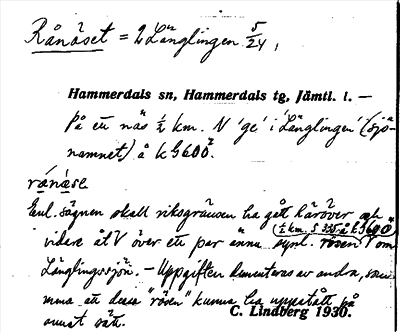 Rånäset = 2 Länglingen 5/24,
Hammerdals sn, Hammerdals tg, Jämtl. l. —
På ett näs ½ km. N 'ge' i 'Länglingen' (sjö-
namnet) å k G600.
rånåse
Enl. sägnen skall riksgränsen ha gått häröver och
(½ km. S 325 å k G600)
vidare åt V över ett par ännu synl. rösen V om
Länglingssjön. – Uppgiften dementeras av andra, som
mena att dessa "rösen" kunna ha uppstått på
annat sätt.
C. Lindberg 1930.